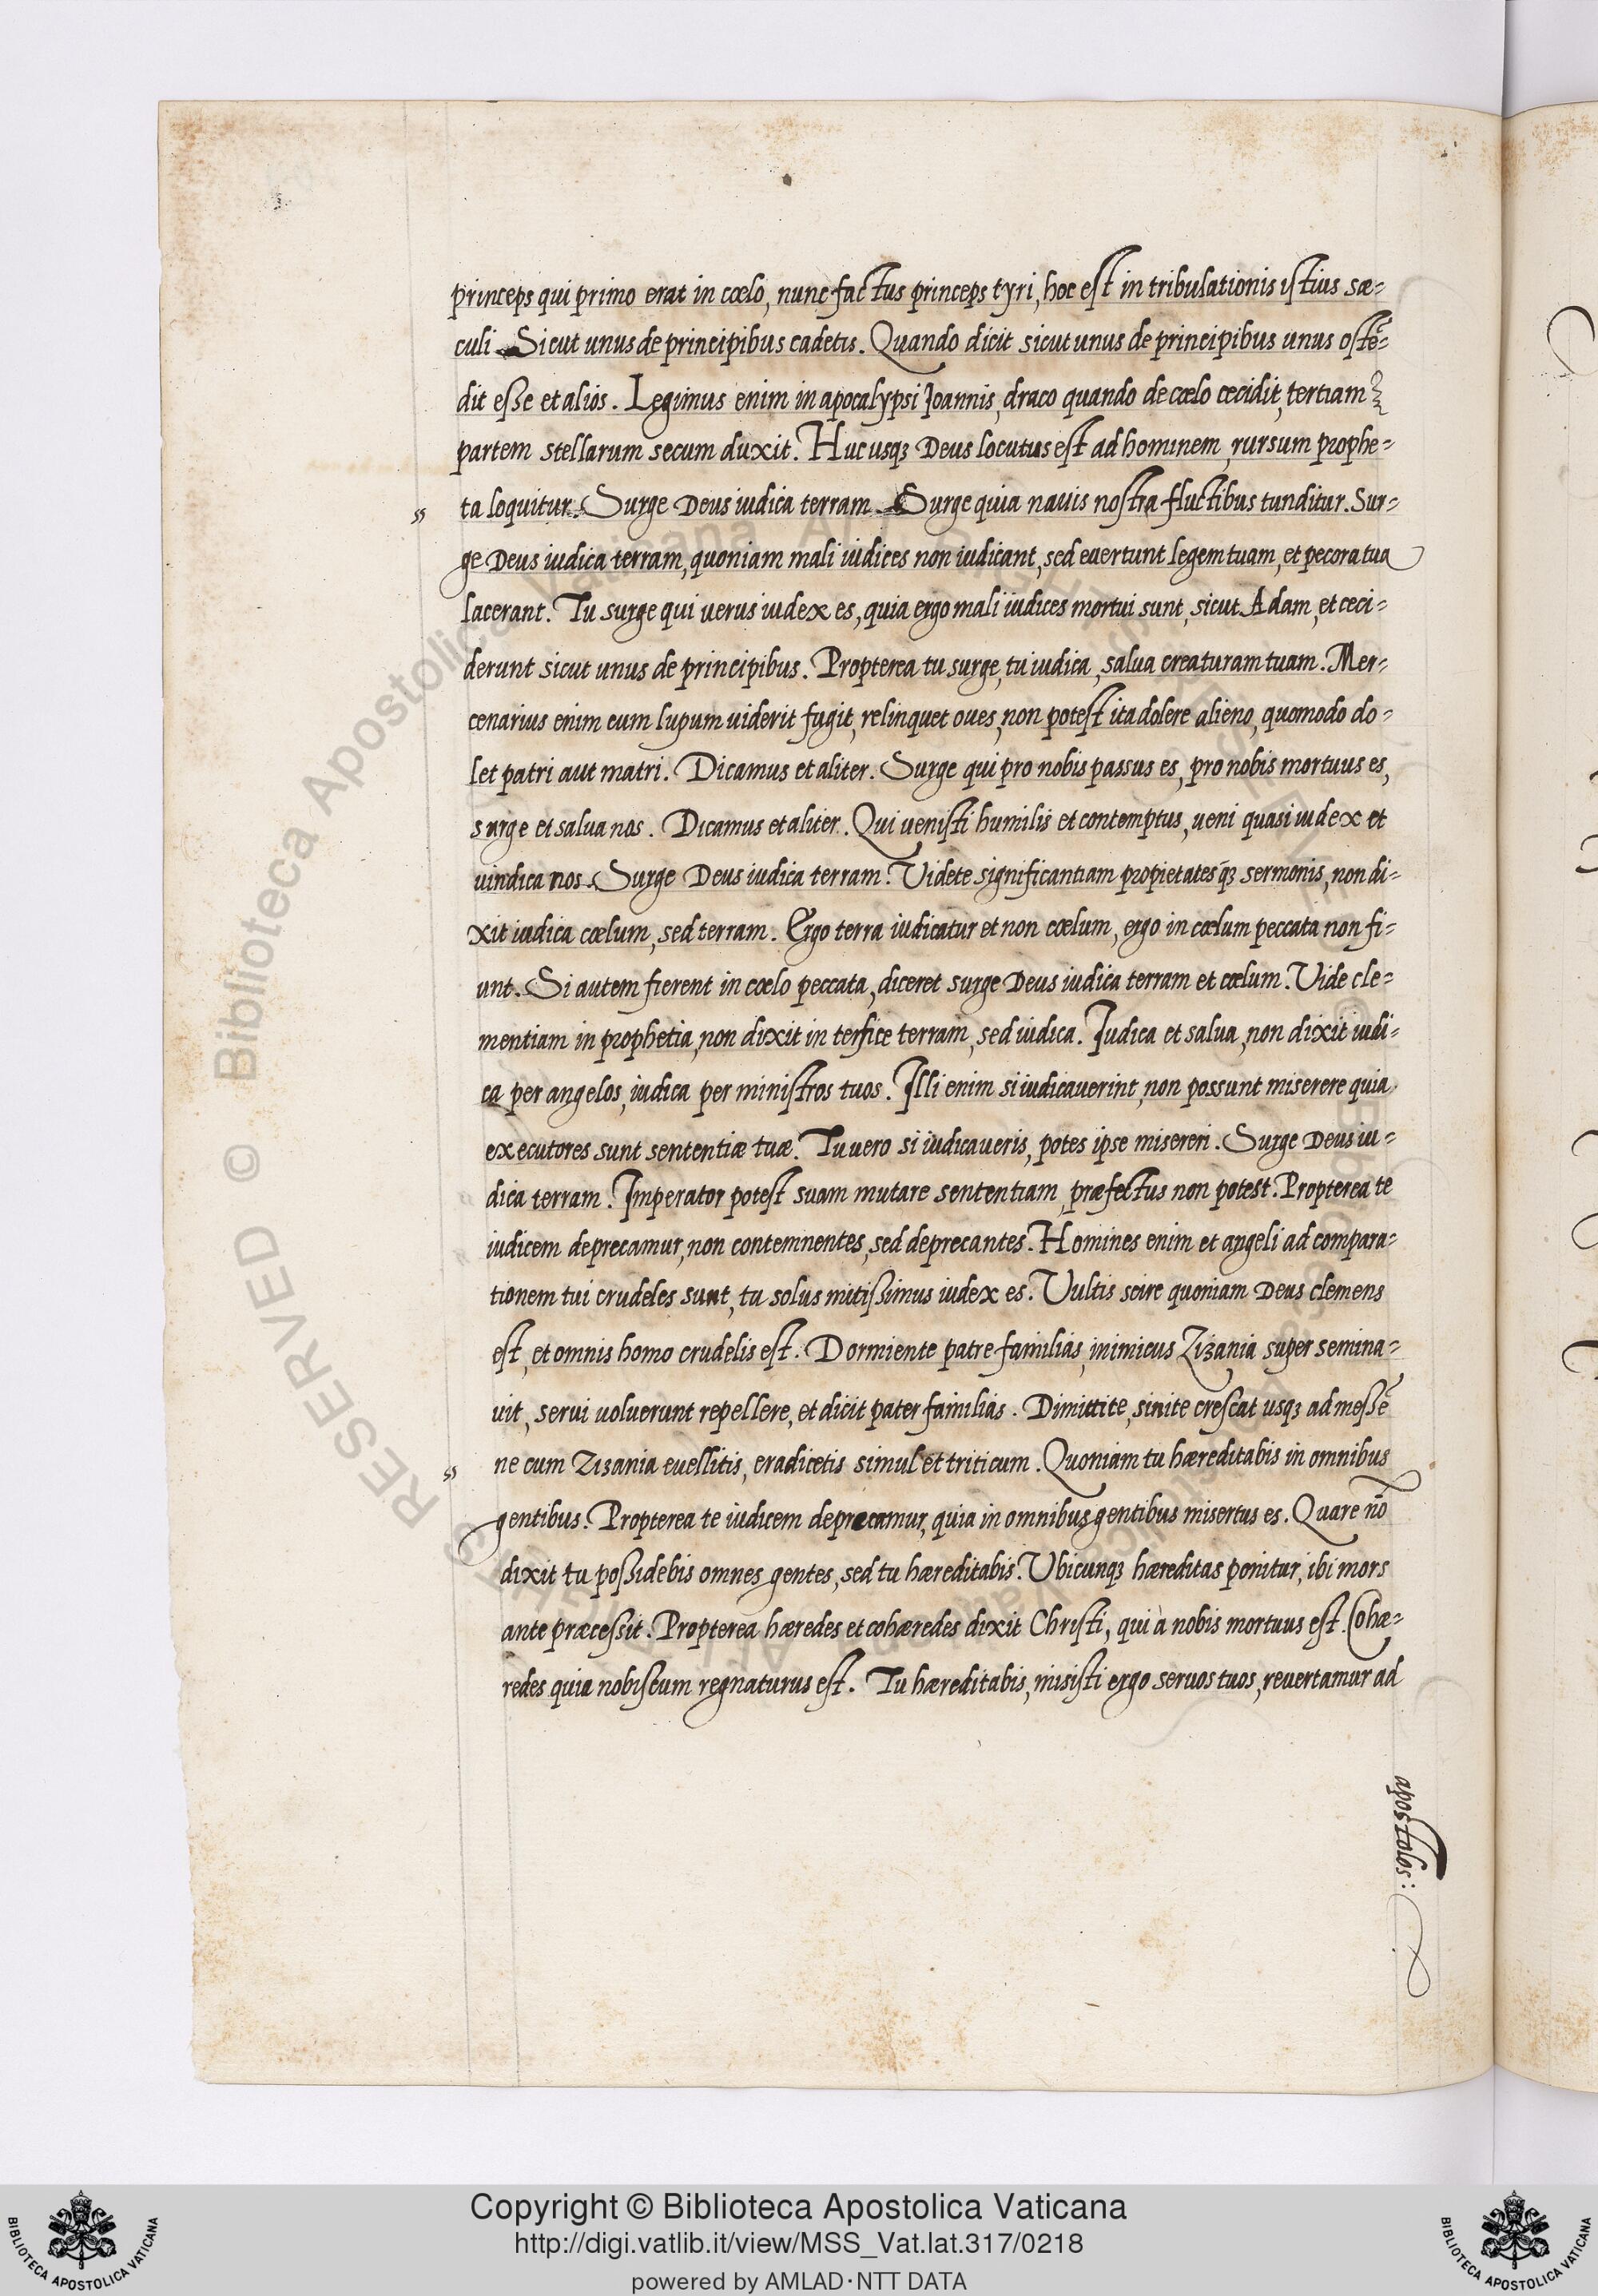 princeps qui primo erat in cœlo, nunc factus princeps tyri, hoc est in tribulationis istius sæ-
culi. Sicut unus de principibus cadetis. Quando dicit sicut unus de principibus unus ostē-
dit esse et alios. Legimus enim in apocalypsi Joannis, draco quando de cœlo cecidit, tertiam
partem stellarum secum duxit. Hucusqꝫ Deus locutus est ad hominem, rursum prophe-
ss ta loquitur. Surge Deus iudica terram. Surge quia nauis nostra fluctibus tunditur. Sur-
ge Deus iudica terram, quoniam mali iudices non iudicant, sed euertunt legem tuam, et pecora tua
lacerant. Tu surge qui uerus iudex es, quia ergo mali iudices mortui sunt, sicut Adam, et ceci-
derunt sicut unus de principibus. Propterea tu surge, tu iudica, salua creaturam tuam. Mer-
cenarius enim cum lupum uiderit fugit, relinquet oues, non potest ita dolere alieno, quomodo do-
let patri aut matri. Dicamus et aliter. Surge qui pro nobis passus es, pro nobis mortuus es,
surge et salua nos. Dicamus et aliter. Qui uenisti humilis et contemptus, ueni quasi iudex et
uindica nos. Surge Deus iudica terram. Videte significantiam propietatesqꝫ sermonis, non di-
xit iudica cœlum, sed terram. Ergo terra iudicatur et non cœlum, ergo in cœlum peccata non fi-
unt. Si autem fierent in cœlo peccata, diceret surge Deus iudica terram et cœlum. Vide cle-
mentiam in prophetia, non dixit in terfice terram, sed iudica. Judica et salua, non dixit iudi-
ca per angelos, iudica per ministros tuos. Illi enim si iudicauerint, non possunt miserere quia
executores sunt sententiæ tuæ. Tu uero si iudicaueris, potes ipse misereri. Surge Deus iu-
dica terram. Imperator potest suam mutare sententiam, præfectus non potest. Propterea te
iudicem deprecamur, non contemnentes, sed deprecantes. Homines enim et angeli ad compara-
tionem tui crudeles sunt, tu solus mitissimus iudex es. Vultis scire quoniam Deus clemens
est, et omnis homo crudelis est. Dormiente patre familias, inimicus Zizania super semina-
uit, serui uoluerunt repellere, et dicit pater familias. Dimittite, sinite crescat usqꝫ ad messē
ss ne cum Zizania euellitis, eradicetis simul et triticum. Quoniam tu hæreditabis in omnibus
gentibus. Propterea te iudicem deprecamur, quia in omnibus gentibus misertus es. Quare nō
dixit tu possidebis omnes gentes, sed tu hæreditabis. Vbicunqꝫ hæreditas ponitur, ibi mors
ante præcessit. Propterea hæredes et cohæredes dixit Christi, qui à nobis mortuus est. Cohæ-
redes quia nobiscum regnaturus est. Tu hæreditabis, misisti ergo seruos tuos, reuertamur ad
apostolos:
© Biblioteca Apostolica Vaticana
RESERVED
Copyright © Biblioteca Apostolica Vaticana
http://digi.vatlib.it/view/MSS_Vat.lat.317/0218
powered by AMLAD·NTT DATA
BIBLIOTECA APOSTOLICA VATICANA
BIBLIOTECA APOSTOLICA VATICANA